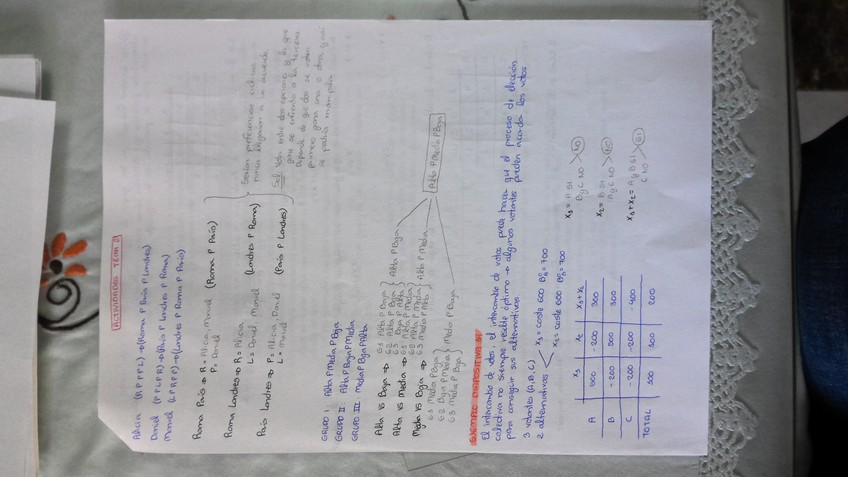 ACTIVIDADES TEMA 8
Alicia (R P P P L) → (Roma P París P Londres)
Daniel (P P L P R) → (París P Londres P Roma)
Marcial (L P R P P) → (Londres P Roma P París)
Roma París → R = Alicia, Marcial (Roma P París)
P = Daniel
Roma Londres → R = Alicia
L = Daniel Marcial (Londres P Roma)
París Londres → P = Alicia, Daniel (París P Londres)
L = Marcial
Serían preferencias
nunca llegarían a un acuerdo
Sol: Votar entre dos opciones y la que
gane se enfrenta a la tercera.
Depende de que dos se voten
primero gana una o otra, y así
se podría manipular
GRUPO I: Alta P Media P Baja
GRUPO II: Alta P Baja P Media
GRUPO III: Media P Baja P Alta
Alta vs Baja → G1 Alta P Baja
G2 Alta P Baja
G3 Baja P Alta
Alta P Baja
Alta vs Media → G1 Alta P Media
G2 Alta P Media
G3 Media P Alta
Alta P Media
Media vs Baja →
G1 Media P Baja
G2 Baja P Media
G3 Media P Baja
Media P Baja
Alta P Media P Baja
EJEMPLO DIAPOSITIVA
El intercambio de votos, el intercambio de votos puede hacer que el proceso de elección
colectiva no siempre resulte óptimo → algunos votantes pueden acordar los votos
para conseguir sus alternativas.
3 votantes (A, B, C)
2 alternativas
X1 = coste 600 Bº = 700
X2 = coste 600 Bº = 700
X1 X2 X1+X2
A 500 -200 300
B -200 500 300
C -200 -200 -400
TOTAL 100 100 200
X1 = A SI
B y C NO
NO
X2 = B SI
A y C NO
NO
X1 + X2 = A y B SI
C NO
SI